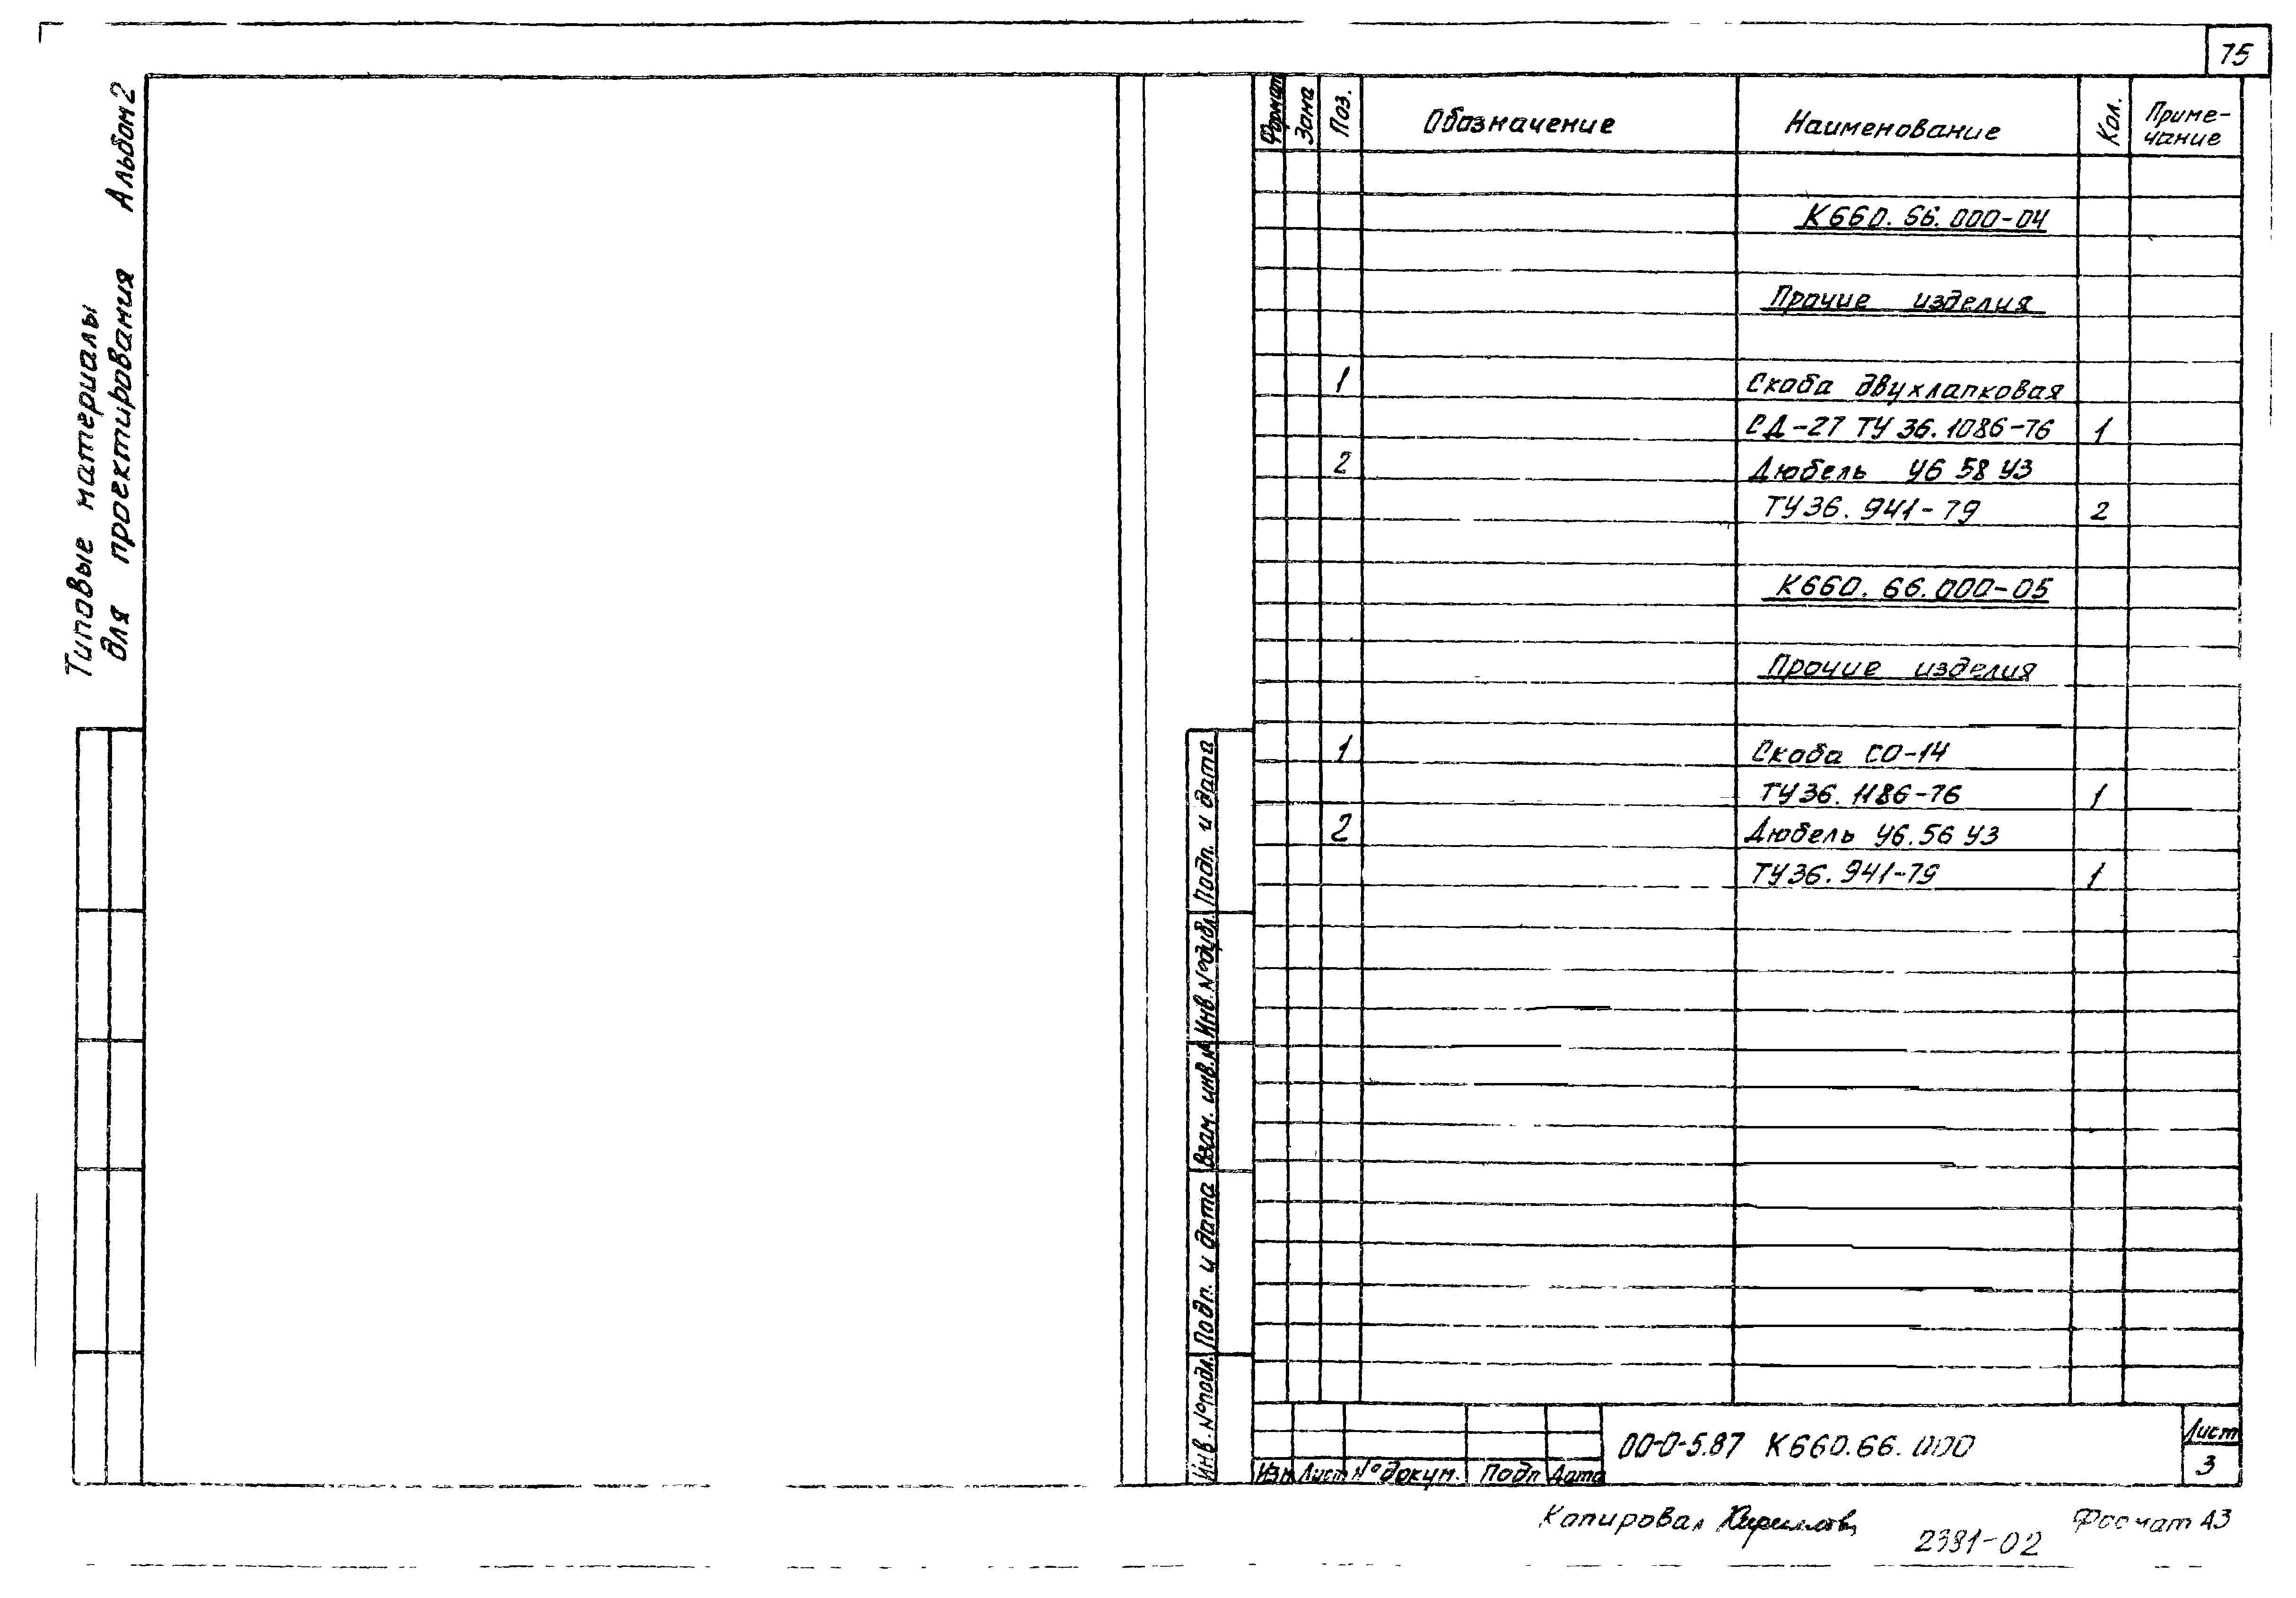 75
Типовые материалы
для проектирования Альбом 2
Формат Зона Поз. Обозначение Наименование Кол. Приме-
чание
К660.66.000-04
Прочие изделия
1 Скоба двухлапковая
СД-27 ТУ 36.1086-76 1
2 Дюбель У6 58 У3
ТУ36.941-79 2
К660.66.000-05
Прочие изделия
1 Скоба СО-14
ТУ36.1186-76 1
2 Дюбель У6.56 У3
ТУ36.941-79 1
Подп. и дата
Инв. № дубл.
Взам. инв. №
Подп. и дата
Инв. № подл.
Изм Лист № докум. Подп Дата
00-0-5.87 К660.66.000
Лист
3
Копировал
Формат А3
2381-02